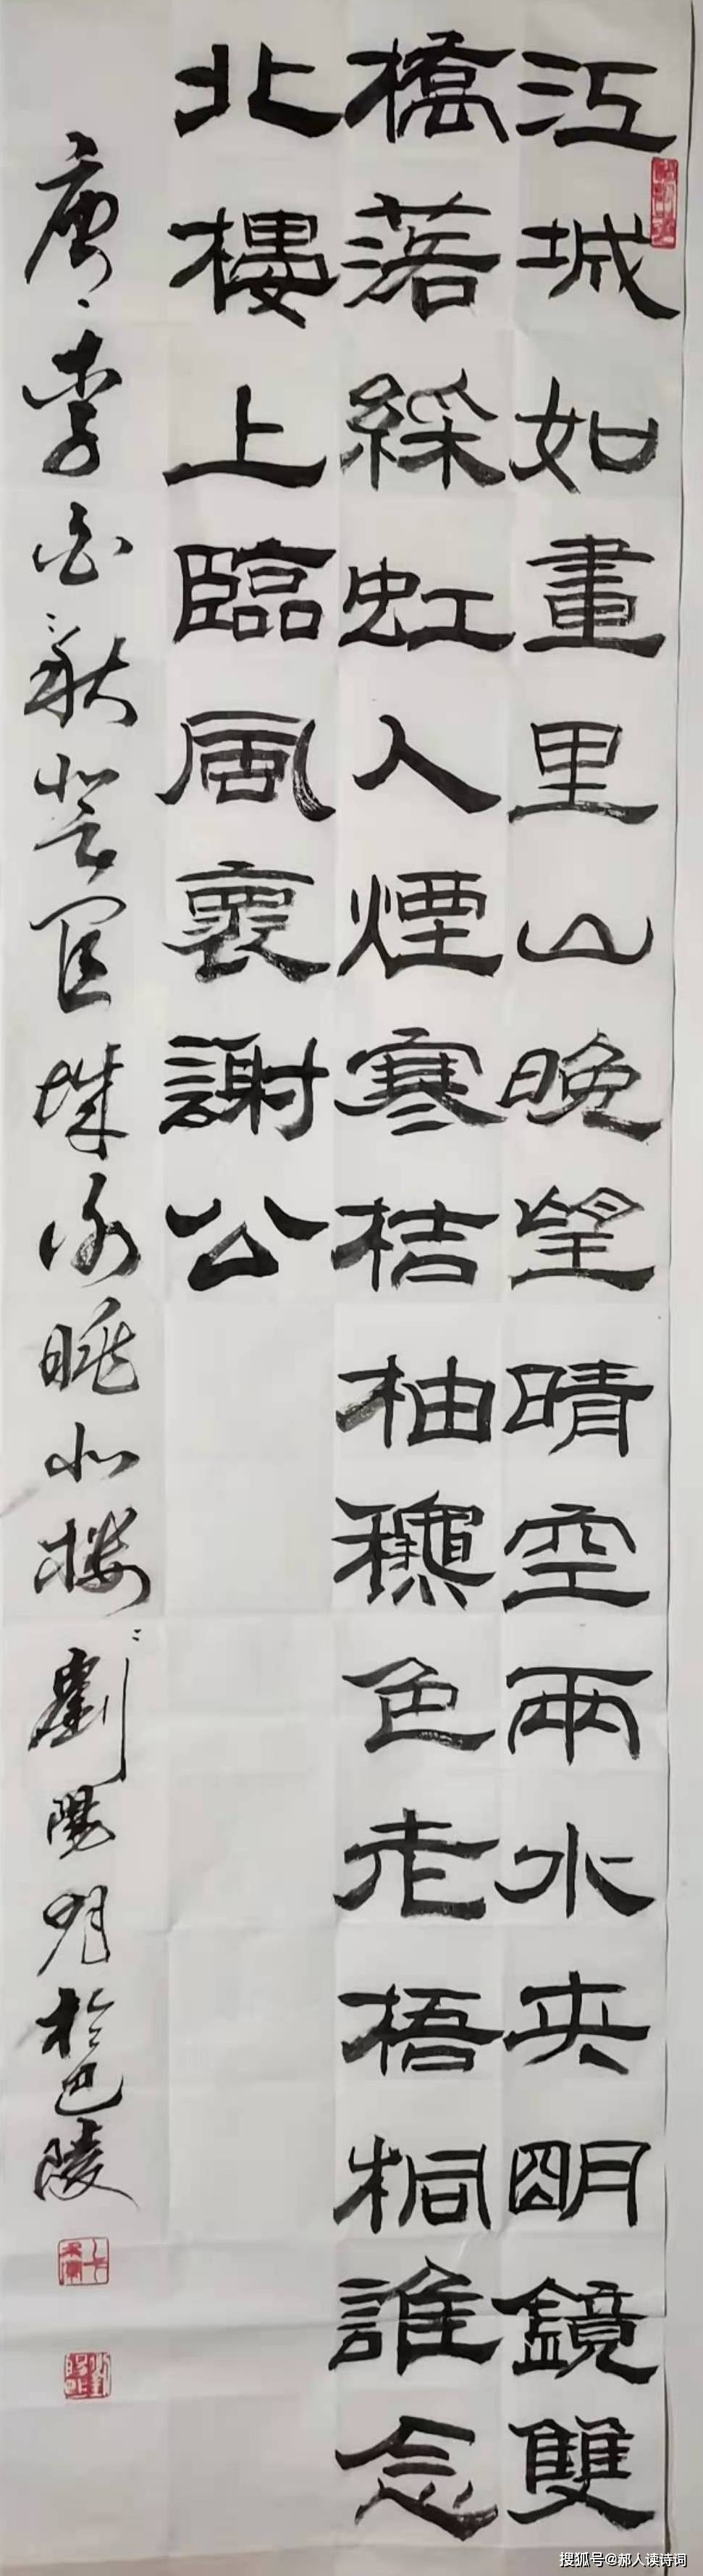 江城如畫里山晚望晴空兩水夹明鏡雙
橋落綵虹人煙寒桔柚龝色老梧桐誰念
北樓上臨風褱謝公
唐·李白秋登宣城谢朓北楼 劉陽明於巴陵
搜狐号@郝人读诗词